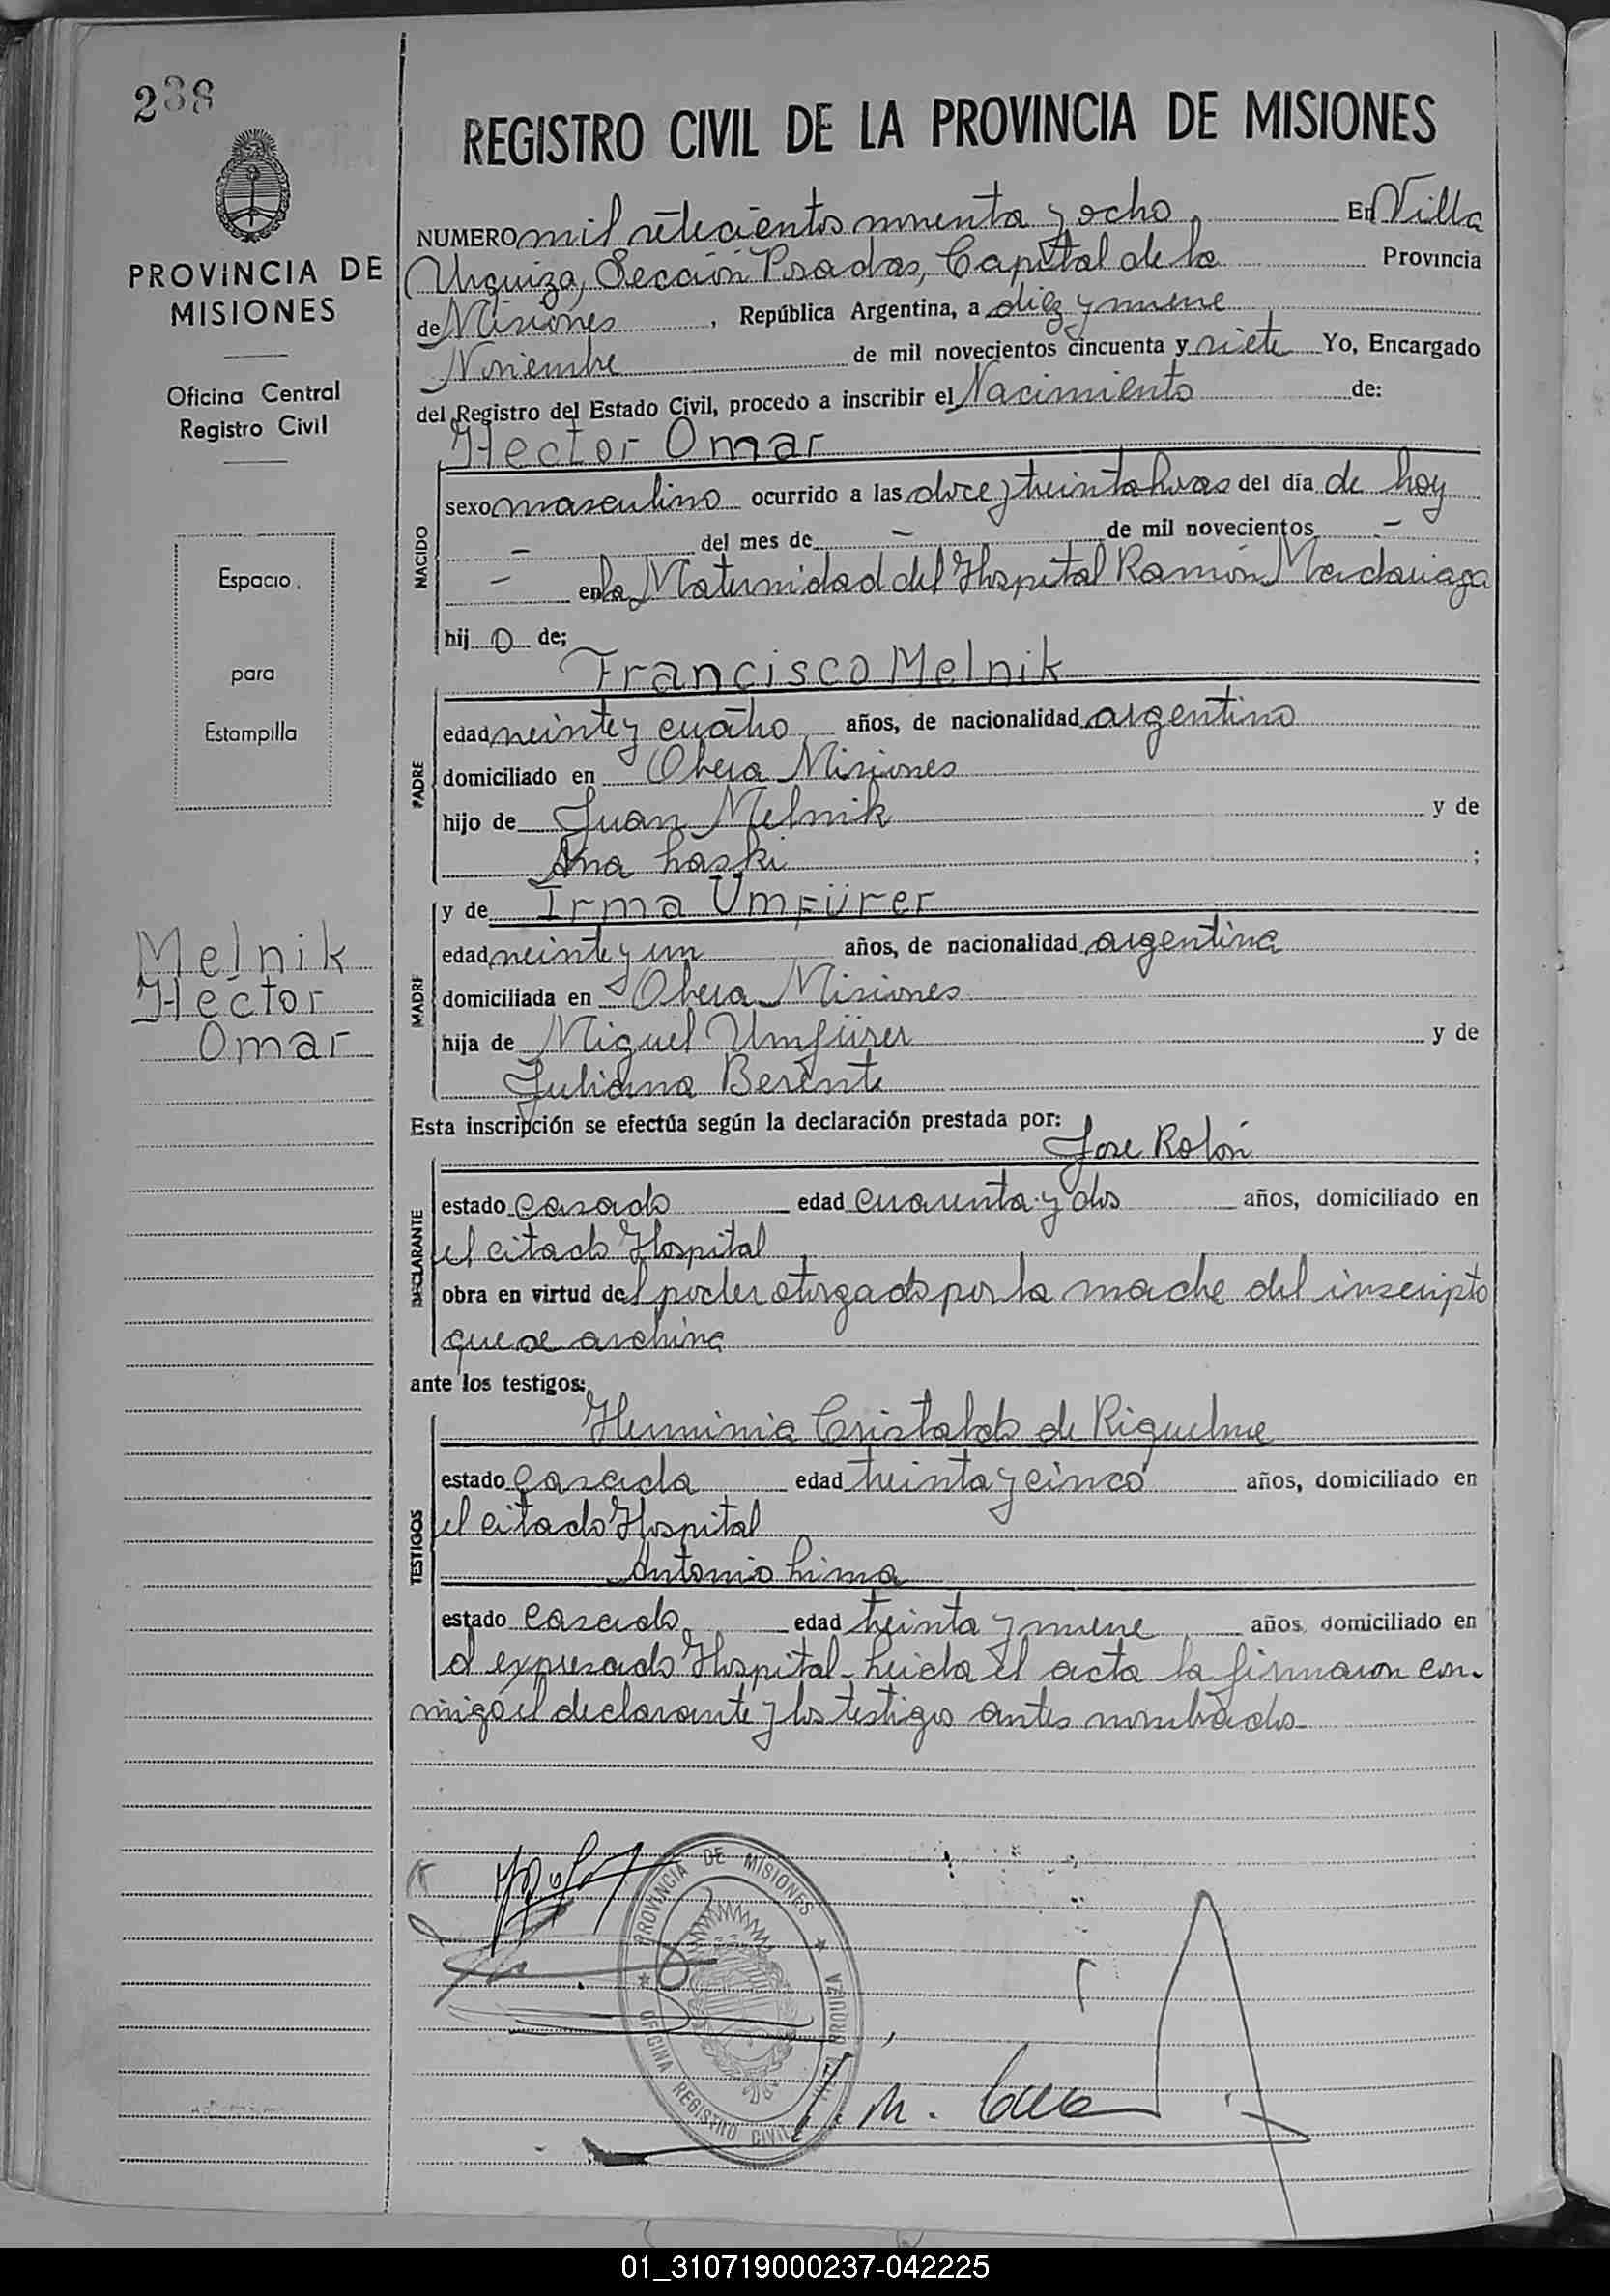 238
PROVINCIA DE
MISIONES
Oficina Central
Registro Civil
Espacio
para
Estampilla
Melnik
Héctor
Omar
REGISTRO CIVIL DE LA PROVINCIA DE MISIONES
NUMERO mil setecientos noventa y ocho En Villa
Urquiza, Sección Posadas, Capital de la Provincia
de Misiones, República Argentina, a diez y nueve
Noviembre de mil novecientos cincuenta y siete Yo, Encargado
del Registro del Estado Civil, procedo a inscribir el Nacimiento de:
Hector Omar
NACIDO
sexo masculino ocurrido a las doce y treinta horas del día de hoy
– del mes de – de mil novecientos –
– en la Maternidad del Hospital Ramón Madariaga
hij o de;
Francisco Melnik
PADRE
edad veinte y cuatro años, de nacionalidad argentino
domiciliado en Obera Misiones
hijo de Juan Melnik y de
Ana Laski ;
y de Irma Umfürer
MADRE
edad veinte y un años, de nacionalidad argentina
domiciliada en Obera Misiones
hija de Miguel Umfürer y de
Juliana Berent
Esta inscripción se efectúa según la declaración prestada por:
Jose Rolón
DECLARANTE
estado casado edad cuarenta y dos años, domiciliado en
el citado Hospital
obra en virtud del poder otorgado por la madre del inscripto
que se archiva
ante los testigos:
Herminia Cristaldo de Riquelme
TESTIGOS
estado casada edad treinta y cinco años, domiciliado en
el citado Hospital
Antonio Lima
estado casado edad treinta y nueve años, domiciliado en
el expresado Hospital - Leida el acta la firmaron con-
migo el declarante y los testigos antes nombrados
PROVINCIA DE MISIONES
OFICINA REGISTRO CIVIL
01_310719000237-042225